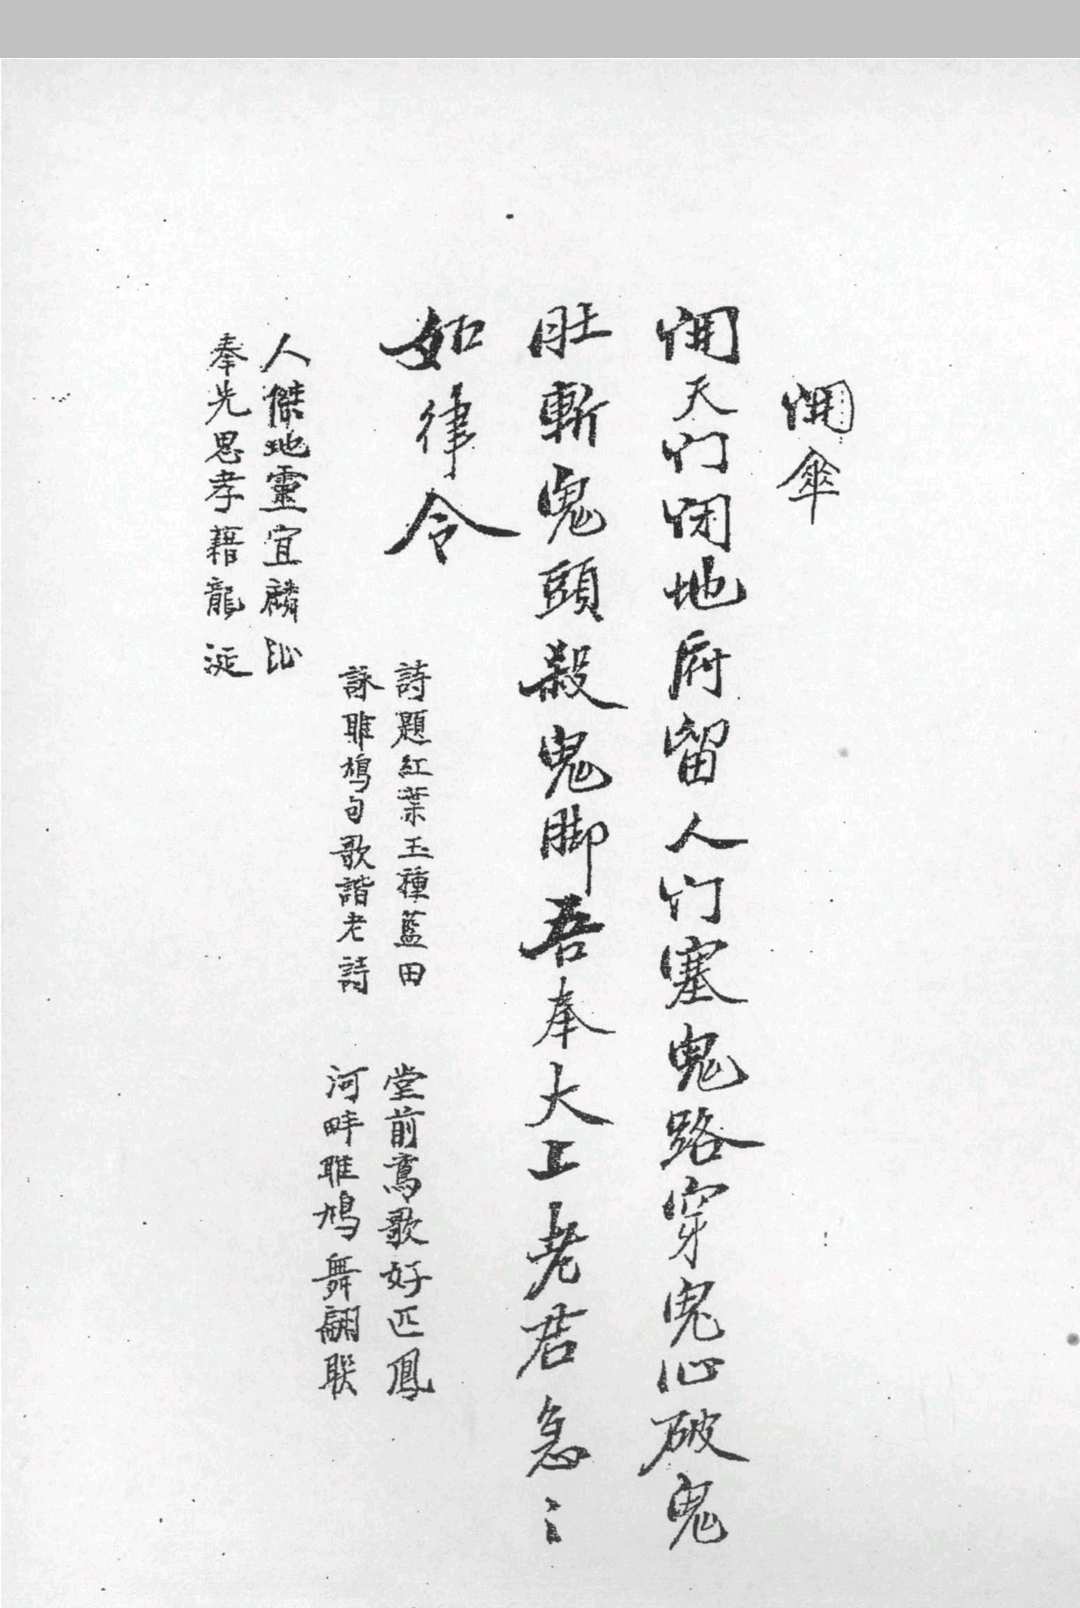 開傘
開天门闭地府留人门塞鬼路穿鬼心破鬼
肚斬鬼頭殺鬼脚吾奉大上老君急〻
如律令
詩題紅葉玉種藍田
詠雎鳩句歌諧老詩
堂前鸞歌好匹鳳
河畔雎鳩舞翩联
人傑地靈宜麟趾
奉先思孝藉龍涎